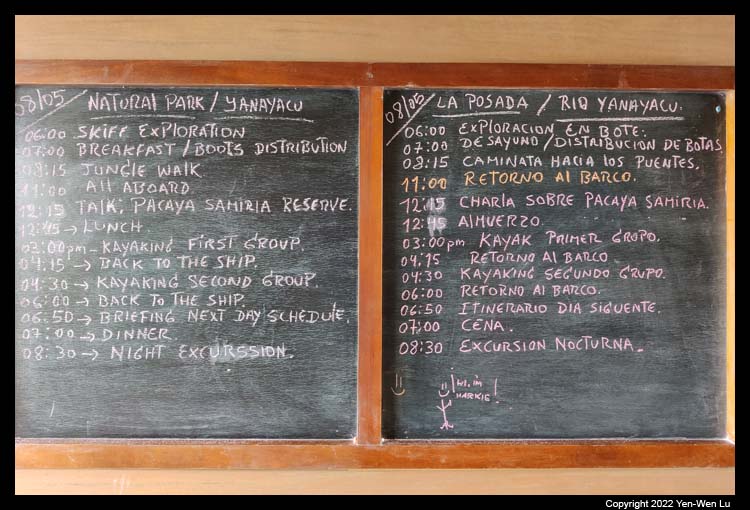 08/05 NATURAL PARK / YANAYACU
06:00 SKIFF EXPLORATION
07:00 BREAKFAST / BOOTS DISTRIBUTION
08:15 JUNGLE WALK
11:00 All ABOARD
12:15 TALK; PACAYA SAMIRIA RESERVE.
12:45 → LUNCH.
03:00pm - KAYAKING FIRST GROUP.
04:15 → BACK TO THE SHIP.
04:30 → KAYAKING SECOND GROUP.
06:00 → BACK TO THE SHIP.
06:50 → BRIEFING NEXT DAY SCHEDULE.
07:00 → DINNER.
08:30 → NIGHT EXCURSSION.
08/05 LA POSADA / RIO YANAYACU.
06:00 EXPLORACION EN BOTE.
07:00 DESAYUNO / DISTRIBUCION DE BOTAS.
08:15 CAMINATA HACIA LOS PUENTES.
11:00 RETORNO Al BARCO.
12:15 CHARLA SOBRE PACAYA SAMIRIA.
12:45 AlMUERZO.
03:00pm KAYAK PRIMER GROPO.
04:15 RETORNO Al BARCO
04:30 KAYAKING SEGUNDO GRUPO.
06:00 RETORNO Al BARCO.
06:50 ITINERARIO DIA SIGUENTE.
07:00 CENA.
08:30 EXCURSION NOCTURNA.
HI, IM
HARKIE !
Copyright 2022 Yen-Wen Lu